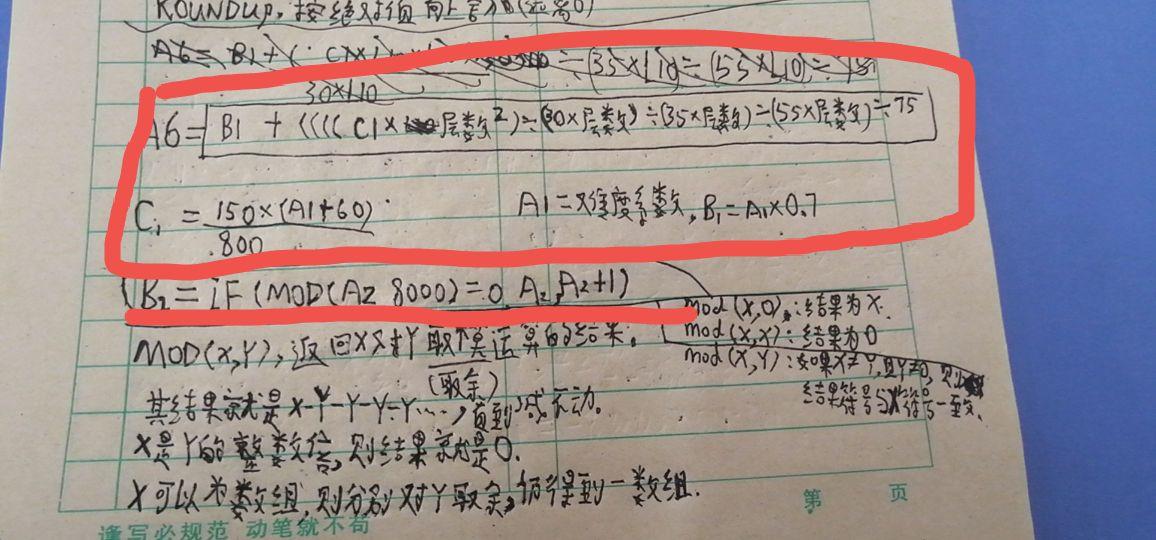 ROUNDUP,按绝对值向上舍入(远离0)
A6= B1+(
÷(35×L10)÷(55×L10)÷75
30×L10
A6= B1 + ((((C1×层数²)÷(30×层数)÷(35×层数)÷(55×层数)÷75
C₁ = 150×(A1+60) A1=难度系数, B₁=A₁×0.7
800
B₂= iF(MOD(A2 8000)=0, A₂, A₂+1)
mod(X,0):结果为X.
mod(X,X):结果为0
MOD(X,Y),返回X对Y取余运算的结果.
(取余)
mod(X,Y):如果X≠Y,且Y≠0,则
结果符号与X符号一致.
其结果就是X-Y-Y-Y-Y……,直到减不动。
X是Y的整数倍,则结果就是0.
X可以为数组,则分别对Y取余,仍得到一数组.
第 页
逢写必规范 动笔就不苟